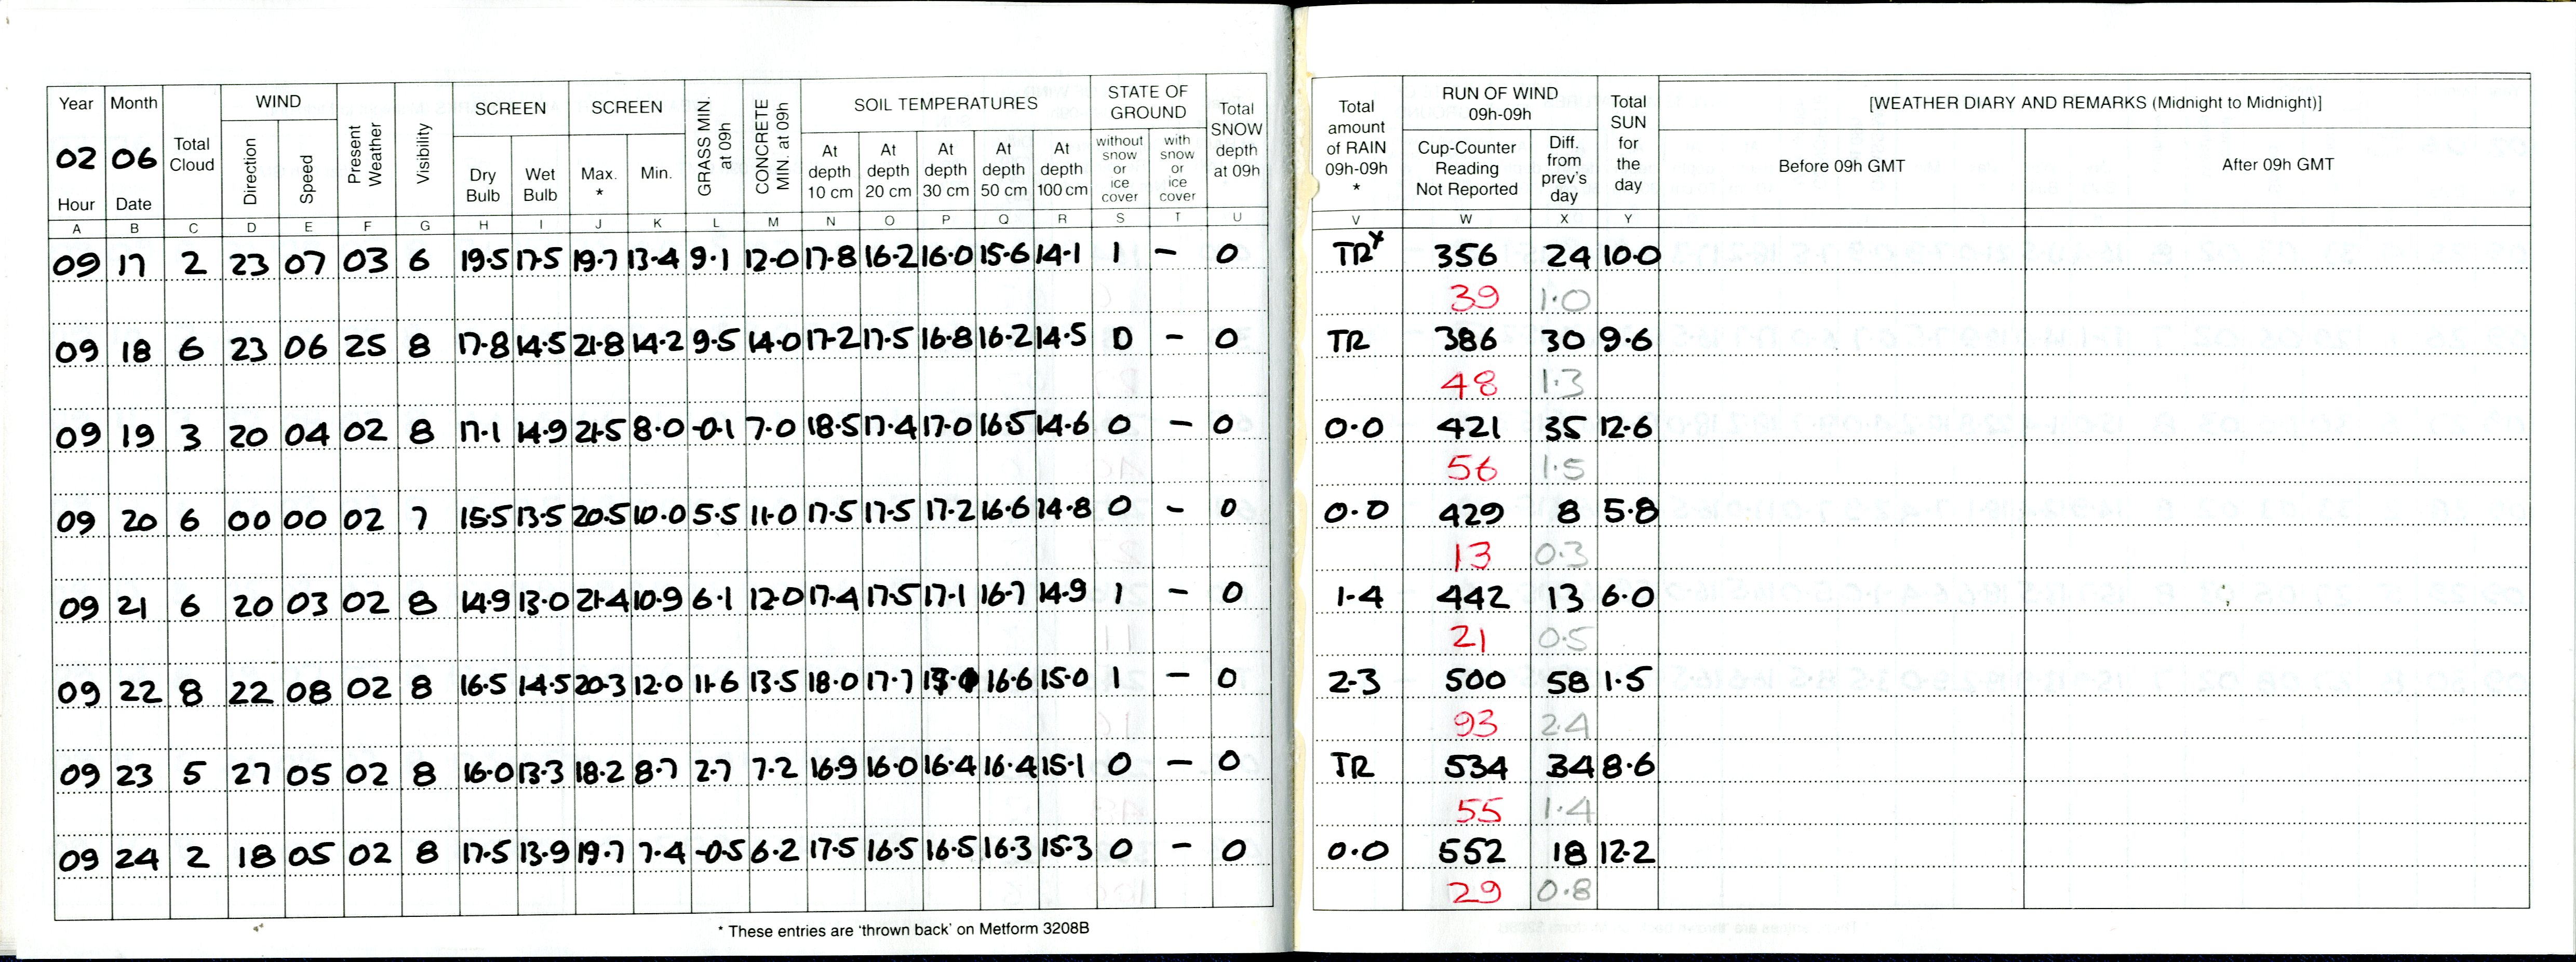 Year Month WIND SCREEN SCREEN SOIL TEMPERATURES STATE OF GROUND Total SNOW depth at 09h Total amount of RAIN 09h-09h * RUN OF WIND 09h-09h Total SUN for the day [WEATHER DIARY AND REMARKS (Midnight to Midnight)]
02 06 Total Cloud Direction Speed Present Weather Visibility Dry Bulb Wet Bulb Max. * Min. GRASS MIN. at 09h CONCRETE MIN. at 09h At depth 10 cm At depth 20 cm At depth 30 cm At depth 50 cm At depth 100 cm without snow or ice cover with snow or ice cover Cup-Counter Reading Not Reported Diff. from prev's day Before 09h GMT After 09h GMT
Hour Date
A B C D E F G H I J K L M N O P Q R S T U V W X Y
09 17 2 23 07 03 6 19.5 17.5 19.7 13.4 9.1 12.0 17.8 16.2 16.0 15.6 14.1 1 – 0 TR* 356 24 10.0
39 1.0
09 18 6 23 06 25 8 17.8 14.5 21.8 14.2 9.5 14.0 17.2 17.5 16.8 16.2 14.5 0 – 0 TR 386 30 9.6
48 1.3
09 19 3 20 04 02 8 17.1 14.9 21.5 8.0 -0.1 7.0 18.5 17.4 17.0 16.5 14.6 0 – 0 0.0 421 35 12.6
56 1.5
09 20 6 00 00 02 7 15.5 13.5 20.5 10.0 5.5 11.0 17.5 17.5 17.2 16.6 14.8 0 – 0 0.0 429 8 5.8
13 0.3
09 21 6 20 03 02 8 14.9 13.0 21.4 10.9 6.1 12.0 17.4 17.5 17.1 16.7 14.9 1 – 0 1.4 442 13 6.0
21 0.5
09 22 8 22 08 02 8 16.5 14.5 20.3 12.0 11.6 13.5 18.0 17.7 16.6 15.0 1 – 0 2.3 500 58 1.5
93 2.4
09 23 5 27 05 02 8 16.0 13.3 18.2 8.7 2.7 7.2 16.9 16.0 16.4 16.4 15.1 0 – 0 TR 534 34 8.6
55 1.4
09 24 2 18 05 02 8 17.5 13.9 19.7 7.4 -0.5 6.2 17.5 16.5 16.5 16.3 15.3 0 – 0 0.0 552 18 12.2
29 0.8
* These entries are 'thrown back' on Metform 3208B